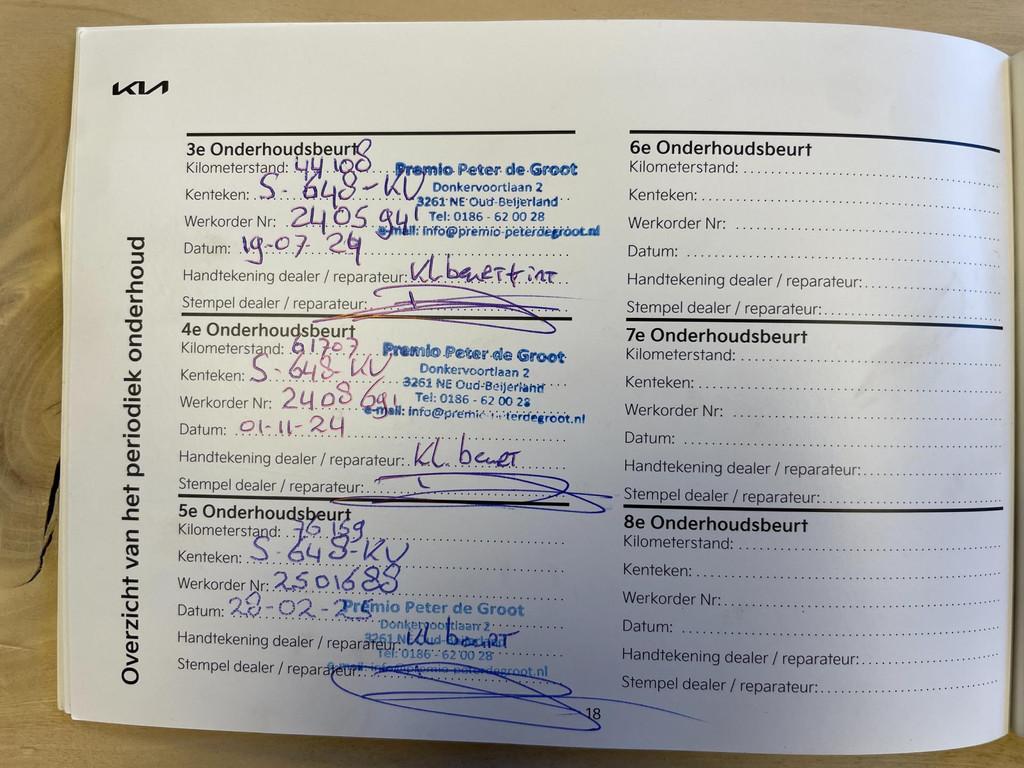 KIA
Overzicht van het periodiek onderhoud
3e Onderhoudsbeurt
Kilometerstand: 44108
Kenteken: S-648-KV
Werkorder Nr: 2405941
Datum: 19-07-24
Handtekening dealer / reparateur: Kl. beurt
Stempel dealer / reparateur:
Premio Peter de Groot
Donkervoortlaan 2
3261 NE Oud-Beijerland
Tel: 0186 - 62 00 28
e-mail: info@premio-peterdegroot.nl
4e Onderhoudsbeurt
Kilometerstand: 61707
Kenteken: S-648-KV
Werkorder Nr: 2408691
Datum: 01-11-24
Handtekening dealer / reparateur: Kl. beurt
Stempel dealer / reparateur:
Premio Peter de Groot
Donkervoortlaan 2
3261 NE Oud-Beijerland
Tel: 0186 - 62 00 28
e-mail: info@premio-peterdegroot.nl
5e Onderhoudsbeurt
Kilometerstand: 76159
Kenteken: S-648-KV
Werkorder Nr: 2501688
Datum: 28-02-25
Handtekening dealer / reparateur: Kl. beurt
Stempel dealer / reparateur:
Premio Peter de Groot
Donkervoortlaan 2
3261 NE Oud-Beijerland
Tel: 0186 - 62 00 28
e-mail: info@premio-peterdegroot.nl
6e Onderhoudsbeurt
Kilometerstand:
Kenteken:
Werkorder Nr:
Datum:
Handtekening dealer / reparateur:
Stempel dealer / reparateur:
7e Onderhoudsbeurt
Kilometerstand:
Kenteken:
Werkorder Nr:
Datum:
Handtekening dealer / reparateur:
Stempel dealer / reparateur:
8e Onderhoudsbeurt
Kilometerstand:
Kenteken:
Werkorder Nr:
Datum:
Handtekening dealer / reparateur:
Stempel dealer / reparateur:
18